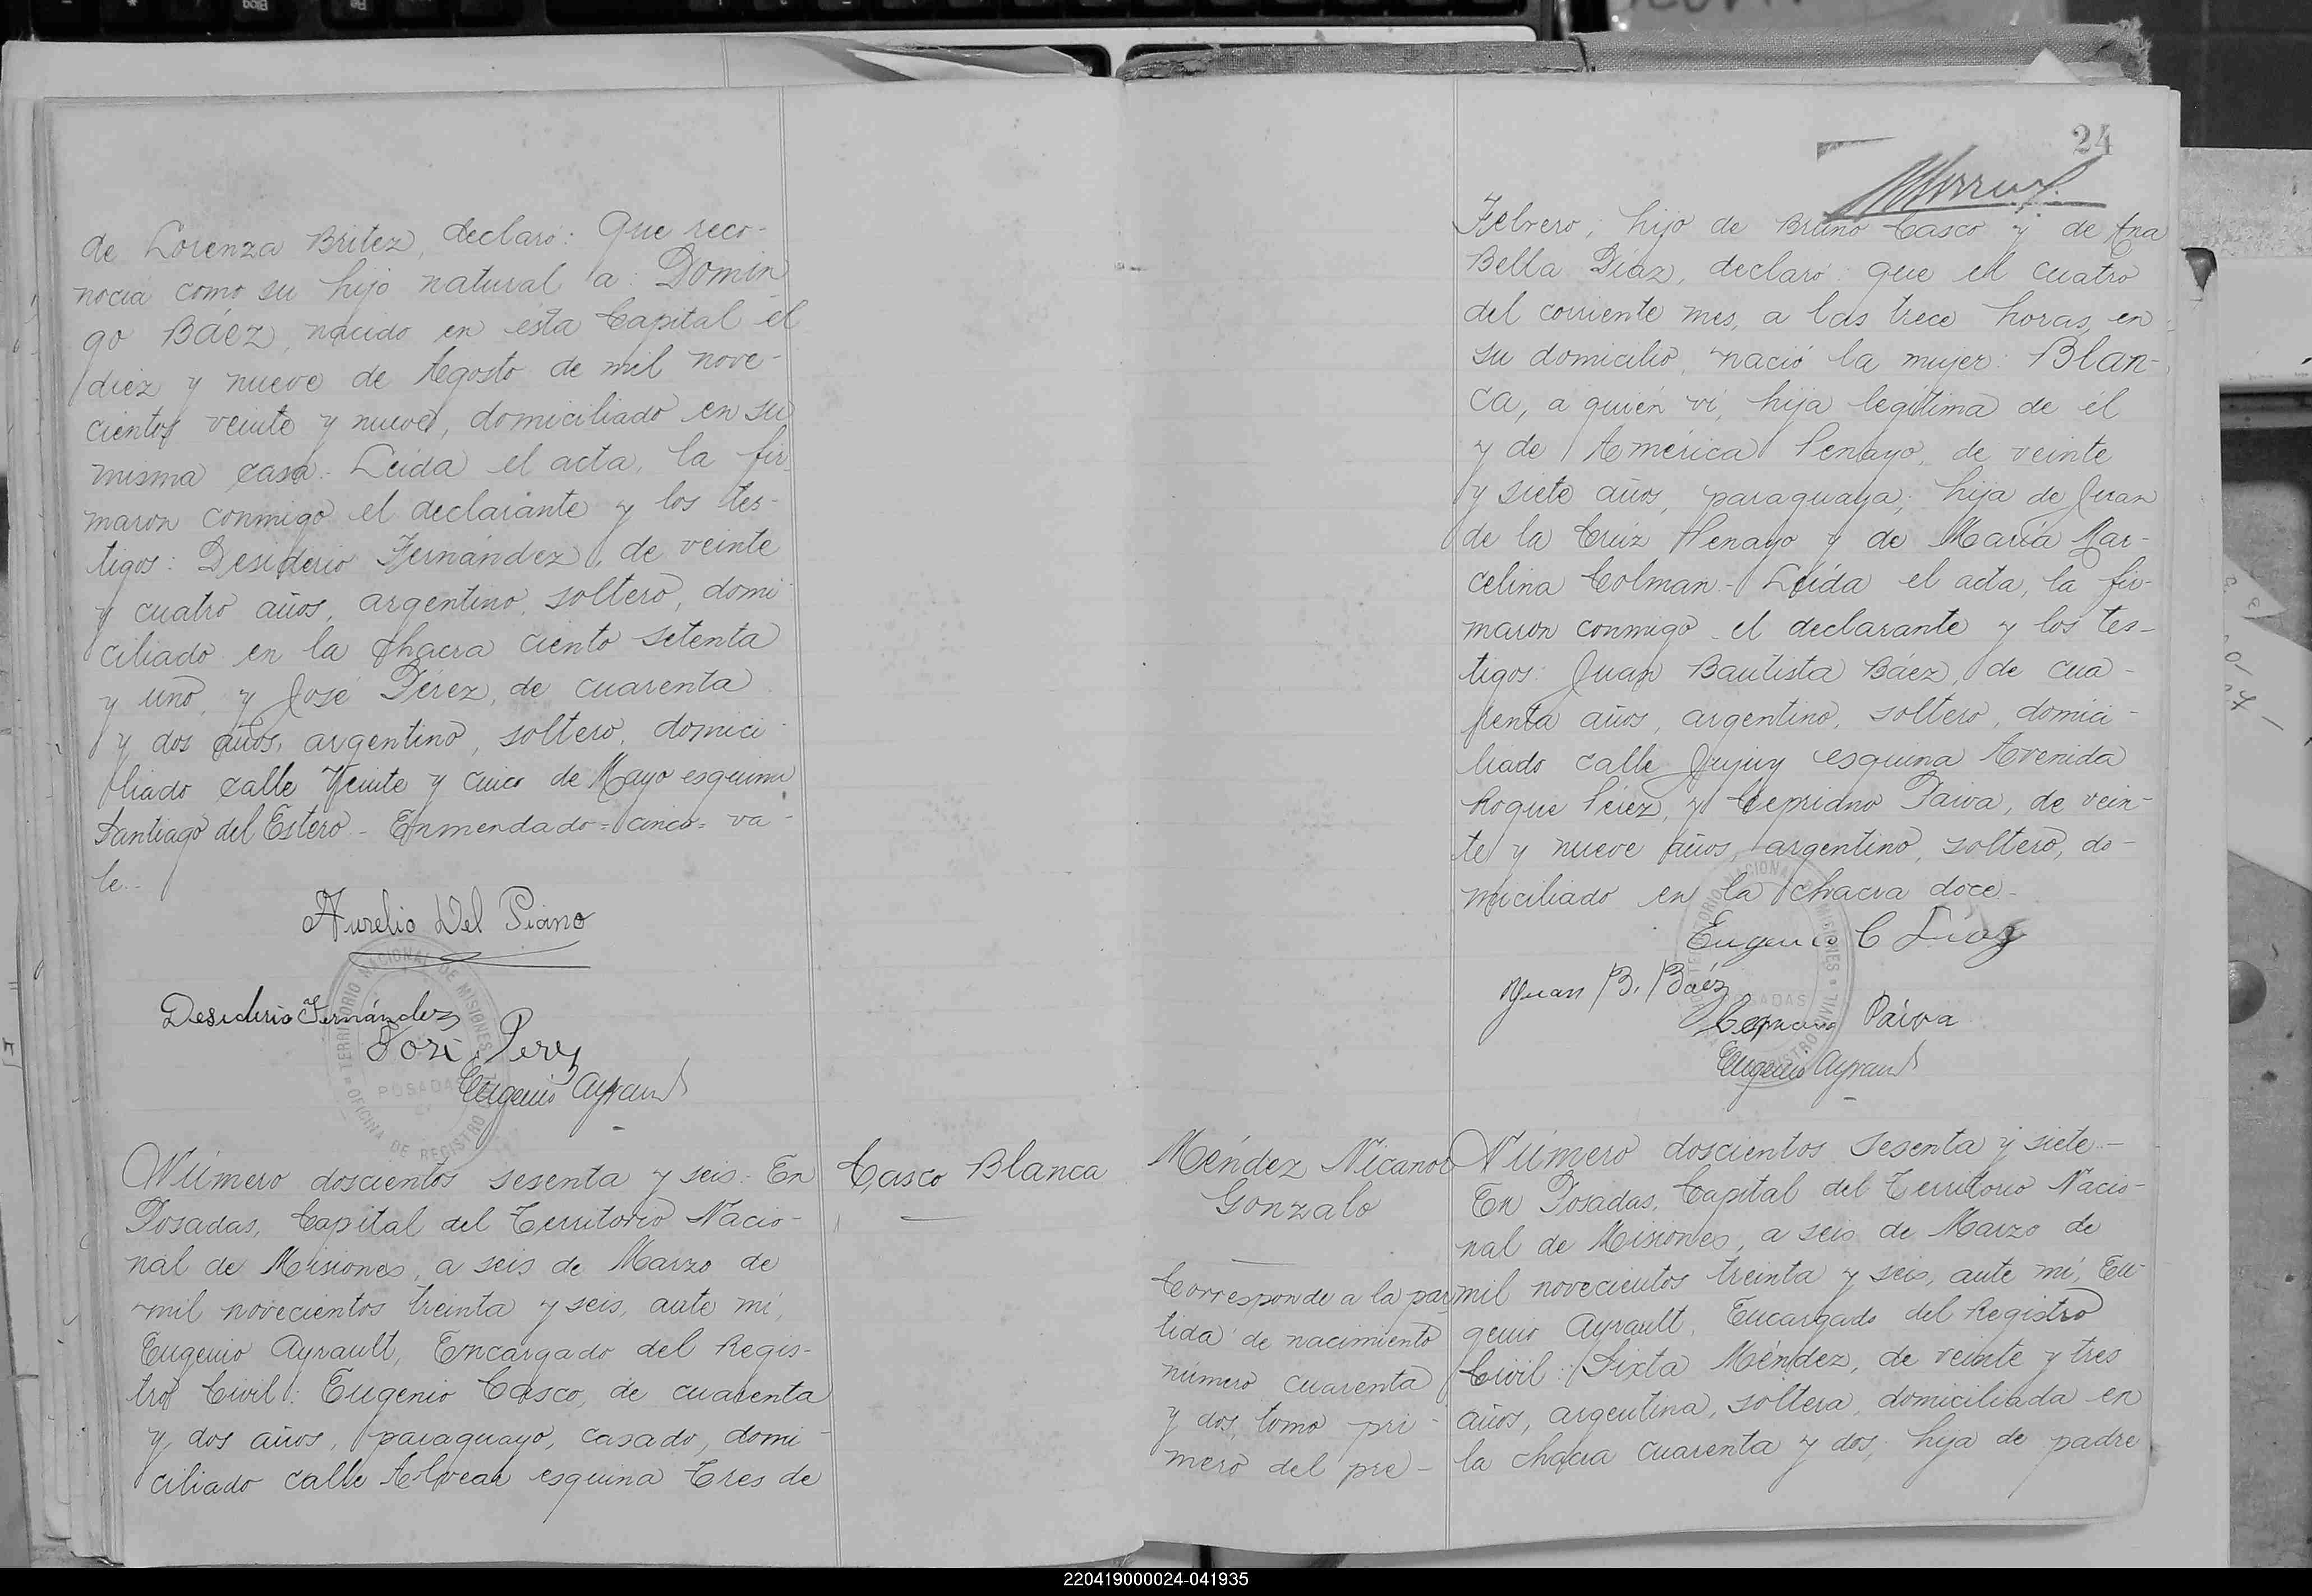 de Lorenza Britez, declaró: Que reco-
nocía como su hijo natural a: Domin
go Báez, nacido en esta Capital el
diez y nueve de Agosto de mil nove-
cientos veinte y nueve, domiciliado en su
misma casa. Leída el acta, la fir
maron conmigo el declarante y los tes-
tigos: Desiderio Fernández, de veinte
y cuatro años, argentino, soltero, domi
ciliado en la chacra ciento setenta
y uno, y José Pérez, de cuarenta
y dos años, argentino, soltero, domici-
liado calle Veinte y cinco de Mayo esquina
Santiago del Estero - Enmendado = cinco = va-
le.-
Aurelio Del Piano
Desiderio Fernández
José Perez
Eugenio Ayrault
TERRITORIO NACIONAL DE MISIONES
POSADAS
OFICINA DE REGISTRO CIVIL
Número doscientos sesenta y seis: En
Posadas, Capital del Territorio Nacio-
nal de Misiones, a seis de Marzo de
mil novecientos treinta y seis, ante mí,
Eugenio Ayrault, Encargado del Regis-
tro Civil: Eugenio Casco, de cuarenta
y dos años, paraguayo, casado, domi-
ciliado calle Alvear esquina Tres de
Casco Blanca
24
Febrero, hijo de Bruno Casco y de Ana
Bella Díaz, declaró: que el cuatro
del corriente mes, a las trece horas, en
su domicilio, nació la mujer: Blan-
ca, a quién ví, hija legítima de él
y de América Penayo, de veinte
y siete años, paraguaya, hija de Juan
de la Cruz Penayo y de María Mar-
celina Colman - Leída el acta, la fir-
maron conmigo el declarante y los tes-
tigos: Juan Bautista Báez, de cua-
renta años, argentino, soltero, domici-
liado calle Jujuy esquina Avenida
Roque Pérez, y Cepriano Paiva, de vein-
te y nueve años, argentino, soltero, do-
miciliado en la chacra doce -
Eugenio C Díaz
Juan B. Báez
Cepriano Paiva
Eugenio Ayrault
TERRITORIO NACIONAL MISIONES
POSADAS
REGISTRO CIVIL
Méndez Nicanor
Gonzalo
Corresponde a la par
tida de nacimiento
número cuarenta
y dos, tomo pri-
mero del pre-
Número doscientos sesenta y siete -
En Posadas, Capital del Territorio Nacio-
nal de Misiones, a seis de Marzo de
mil novecientos treinta y seis, ante mí, Eu-
genio Ayrault, Encargado del Registro
Civil: Sixta Méndez, de veinte y tres
años, argentina, soltera, domiciliada en
la chacra cuarenta y dos, hija de padre
220419000024-041935